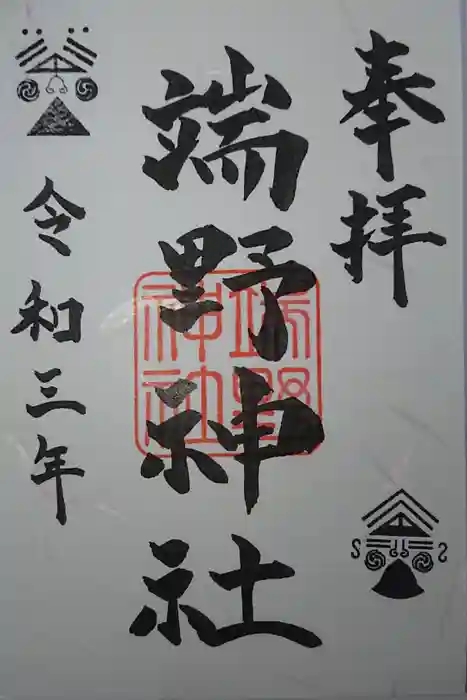 奉拝
端野神社
端野
神社
令和三年